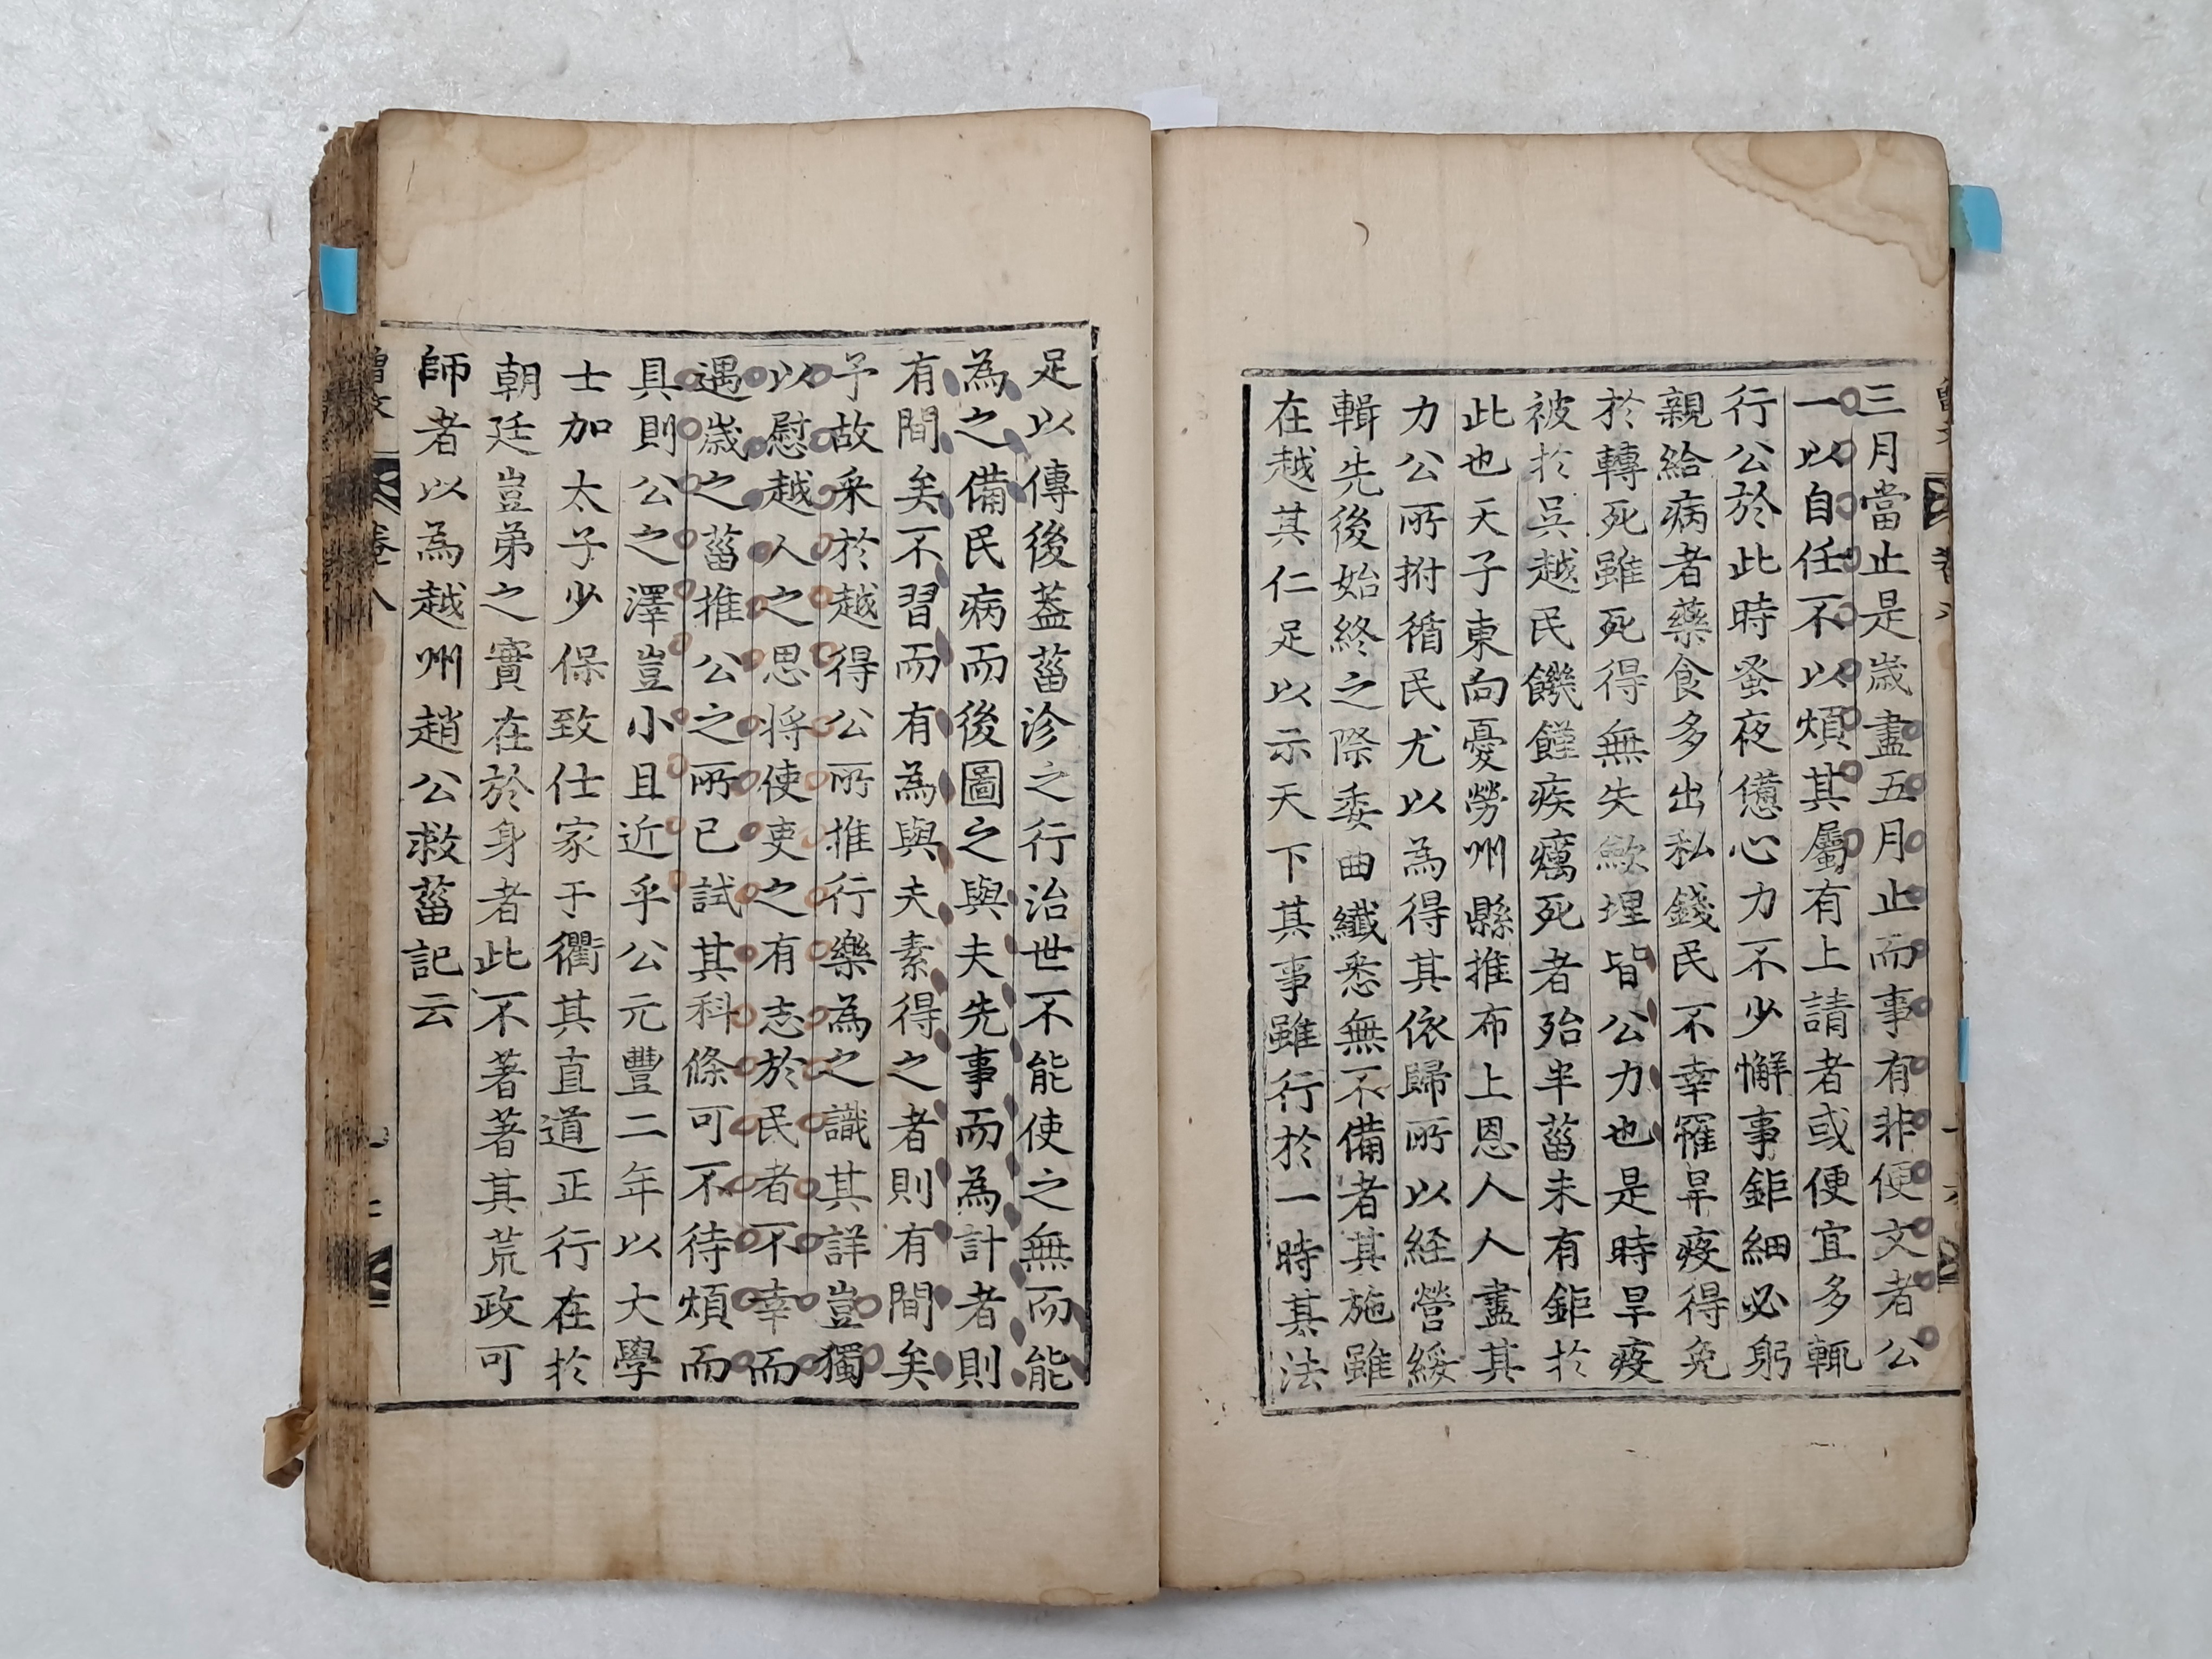 三月當止是歲盡五月止而事有非便文者公
一以自任不以煩其屬有上請者或便宜多輒
行公於此時蚤夜憊心力不少懈事鉅細必躬
親給病者藥食多出私錢民不幸罹旱疫得免
於轉死雖死得無失歛埋皆公力也是時旱疫
被於吳越民饑饉疾癘死者殆半菑未有鉅於
此也天子東向憂勞州縣推布上恩人人盡其
力公所拊循民尤以為得其依歸所以経營綏
輯先後始終之際委曲纖悉無不備者其施雖
在越其仁足以示天下其事雖行於一時其法
足以傳後葢菑沴之行治世不能使之無而能
為之備民病而後圖之與夫先事而為計者則
有間矣不習而有為與夫素得之者則有間矣
予故采於越得公所推行樂為之識其詳豈獨
以慰越人之思将使吏之有志於民者不幸而
遇歲之菑推公之所已試其科條可不待煩而
具則公之澤豈小且近乎公元豐二年以大學
士加太子少保致仕家于衢其直道正行在於
朝廷豈弟之實在於身者此不著著其荒政可
師者以為越州趙公救菑記云
卷八